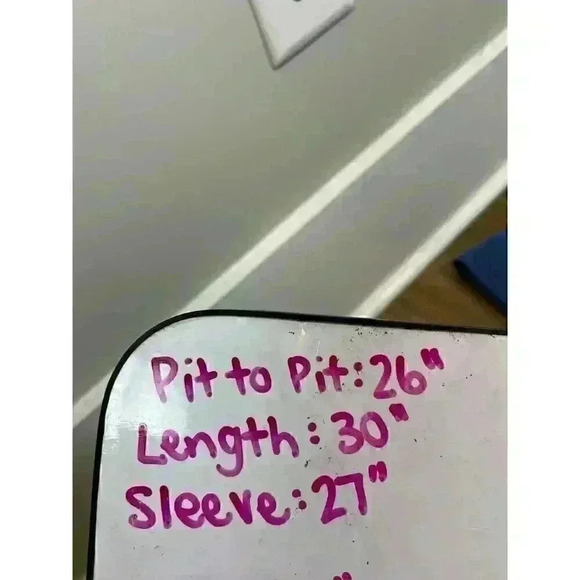 Pit to Pit: 26"
Length: 30"
Sleeve: 27"